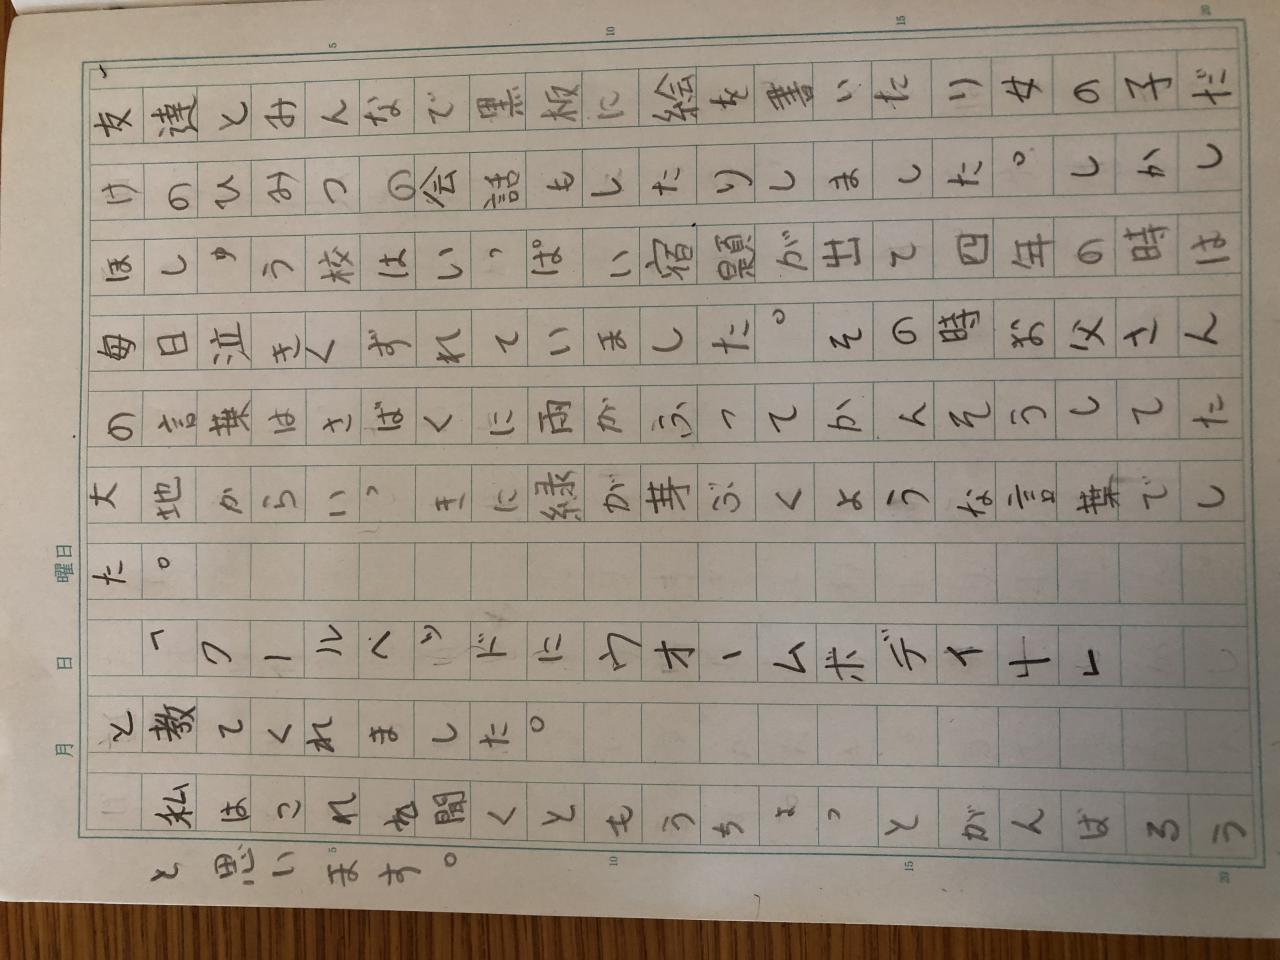 月 日 曜日
5 10 15 20
友達とみんなで黒板に絵を書いたり女の子だ
けのひみつの会話もしたりしました。しかし
ほしゅう校はいっぱい宿題が出て四年の時は
毎日泣きくずれていました。その時お父さん
の言葉はさばくに雨がふってかんそうしてた
大地からいっきに緑が芽ぶくような言葉でし
た。
「クールヘッドにウオームボディ」
と教てくれました。
私はこれを聞くともうちょっとがんばろう
と思います。
5 10 15 20